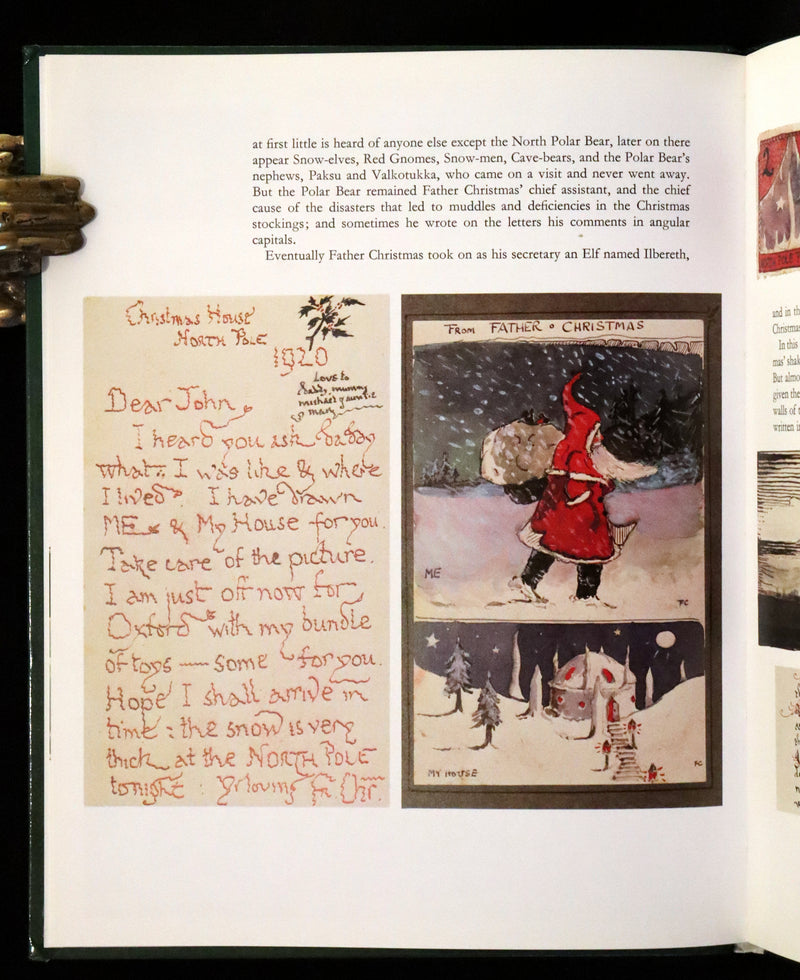 at first little is heard of anyone else except the North Polar Bear, later on there
appear Snow-elves, Red Gnomes, Snow-men, Cave-bears, and the Polar Bear's
nephews, Paksu and Valkotukka, who came on a visit and never went away.
But the Polar Bear remained Father Christmas' chief assistant, and the chief
cause of the disasters that led to muddles and deficiencies in the Christmas
stockings; and sometimes he wrote on the letters his comments in angular
capitals.
Eventually Father Christmas took on as his secretary an Elf named Ilbereth,
Christmas House
NORTH POLE
1920
Love to
daddy, mummy
michael & auntie
mary
Dear John,
I heard you ask daddy
what I was like & where
I lived. I have drawn
ME & My House for you.
Take care of the picture.
I am just off now for
Oxford with my bundle
of toys — some for you.
Hope I shall arrive in
time: the snow is very
thick at the NORTH POLE
tonight: Yr loving Fr. Chr.
FROM FATHER CHRISTMAS
ME
FC
MY HOUSE
FC
2
NORTH POLE
and in th
Christmas
In this
mas' shak
But almo
given the
walls of t
written i